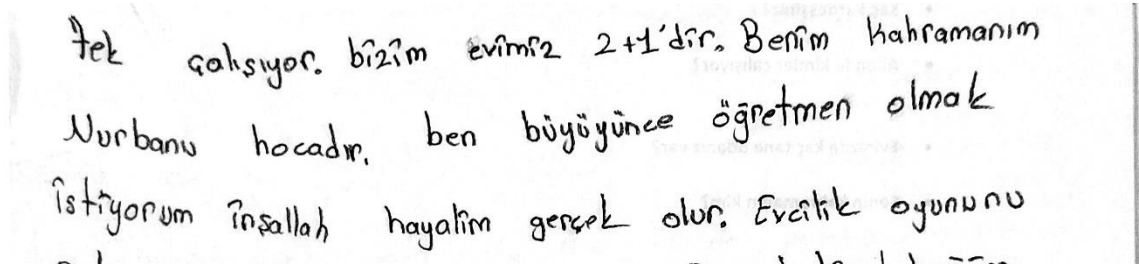 tek çalışıyor. bizim evimiz 2+1'dir. Benim kahramanım
Nurbanu hocadır. ben büyüyünce öğretmen olmak
istiyorum inşallah hayalim gerçek olur. Evcilik oyununu